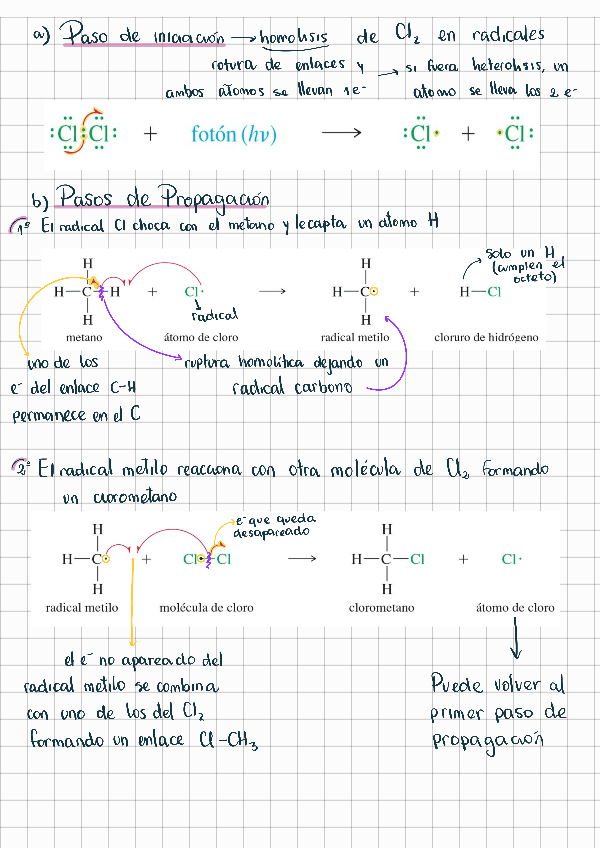 a) Paso de iniciación → homolisis de Cl₂ en radicales
rotura de enlaces y → si fuera heterolisis, un
ambos átomos se llevan 1e⁻ átomo se lleva los 2 e⁻
:Cl:Cl: + fotón (hν) → :Cl· + ·Cl:
b) Pasos de Propagación
1º El radical Cl choca con el metano y le capta un átomo H
solo un H
(cumplen el
octeto)
H H
H—C—H + Cl· → H—C· + H—Cl
H H
radical
metano átomo de cloro radical metilo cloruro de hidrógeno
uno de los
e⁻ del enlace C-H
permanece en el C
ruptura homolítica dejando un
radical carbono
2º El radical metilo reacciona con otra molécula de Cl₂ formando
un clorometano
e⁻ que queda
desapareado
H H
H—C· + Cl—Cl → H—C—Cl + Cl·
H H
radical metilo molécula de cloro clorometano átomo de cloro
el e⁻ no apareado del
radical metilo se combina
con uno de los del Cl₂
formando un enlace Cl-CH₃
Puede volver al
primer paso de
propagación